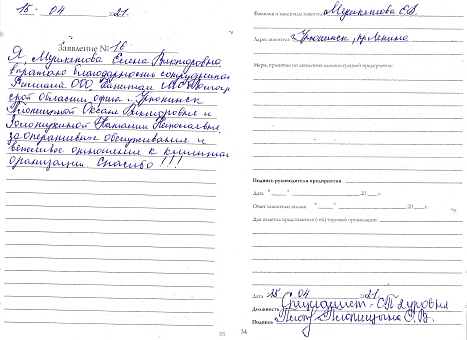 15. 04 2021.
Заявление № 16
Я Мурикенова Елена Викторовна
выражаю благодарность сотрудникам
Филиала ООО "Капитал МС"
ской области офиса г. Урюпинск
Оксане Викторовне и
Наталии Николаевне
за оперативное обслуживание и
вежливое отношение к клиентам
организации. Спасибо!!!
33
Фамилия и инициалы заявителя
Адрес заявителя г. Урюпинск, Ленина
Меры, принятые по заявлению администрацией предприятия:
Подпись руководителя предприятия
Дата "____" 20 г.
Ответ заявителю послан "____" 20 г.
Для отметок представителя (-ей) торговой организации
Дата 15 04 2021
Должность Специалист
Подпись
34